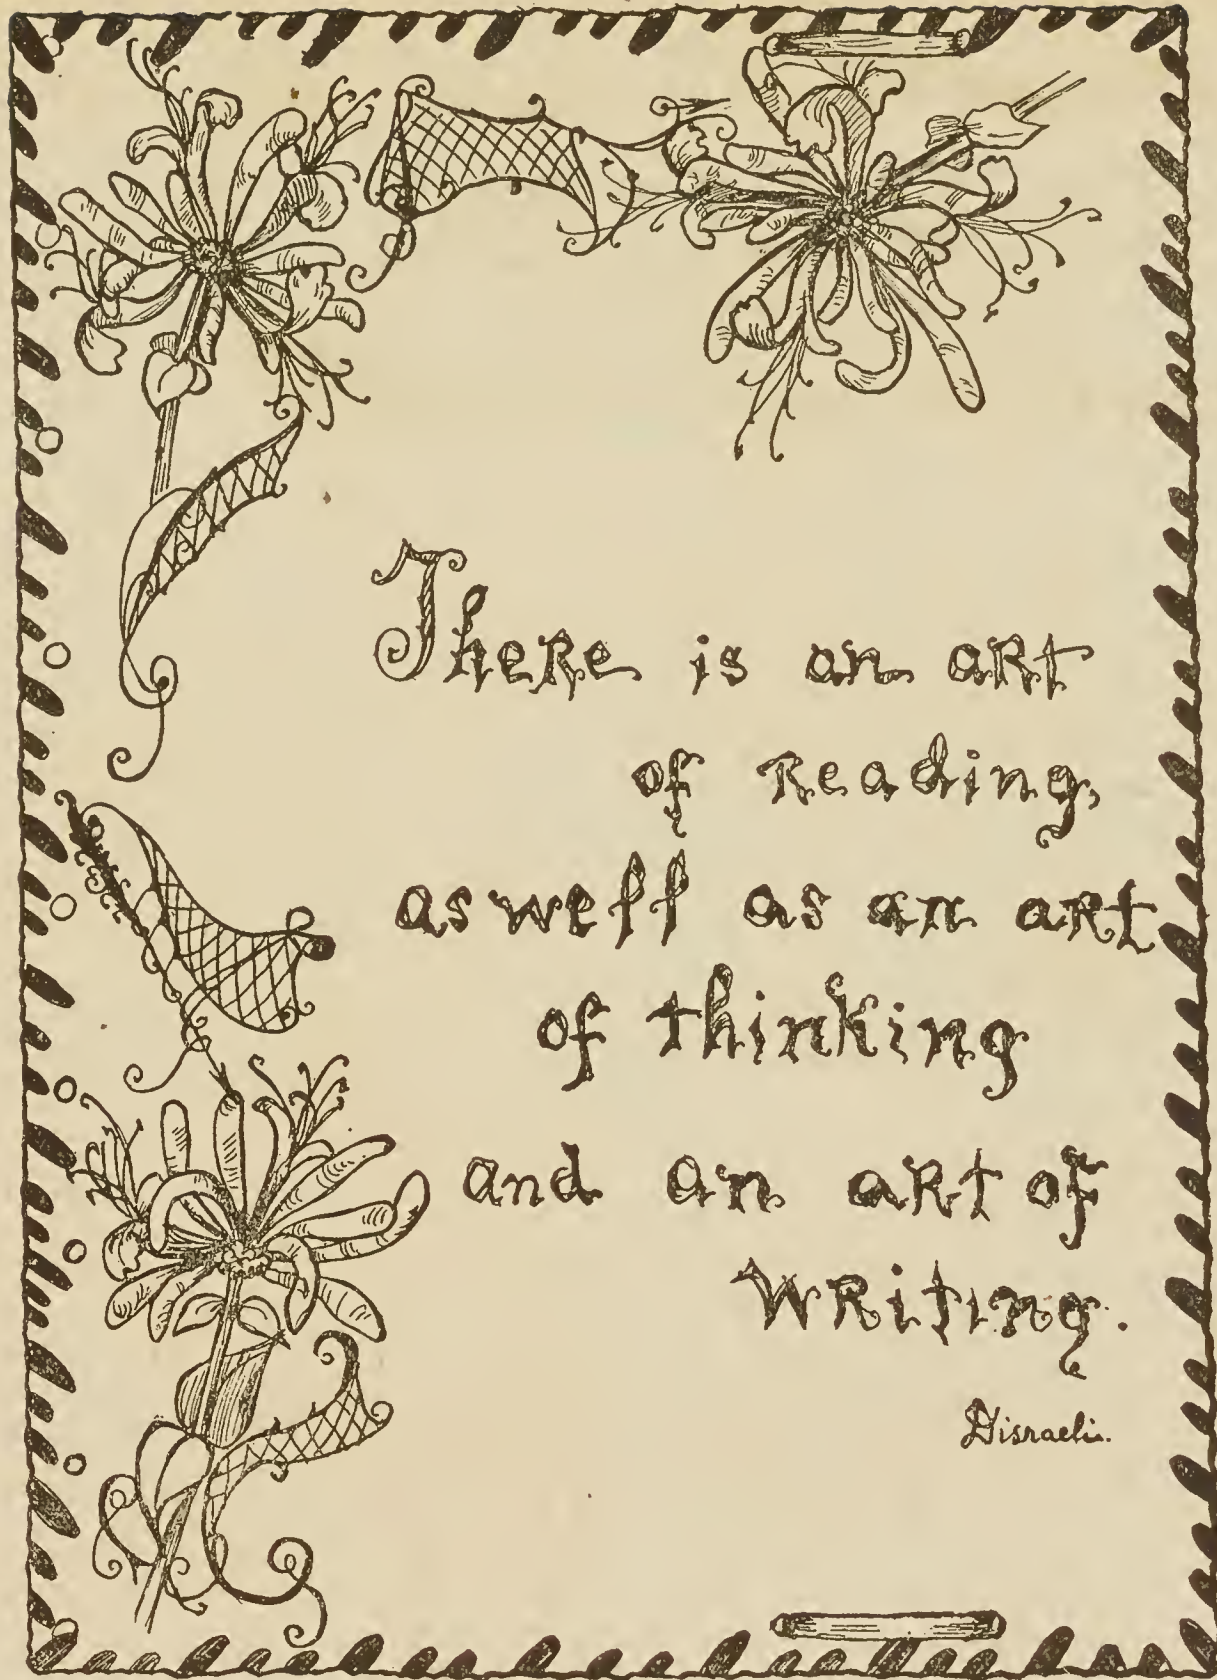 There is an art
of Reading,
as well as an art
of thinking
and an art of
Writing.
Disraeli.